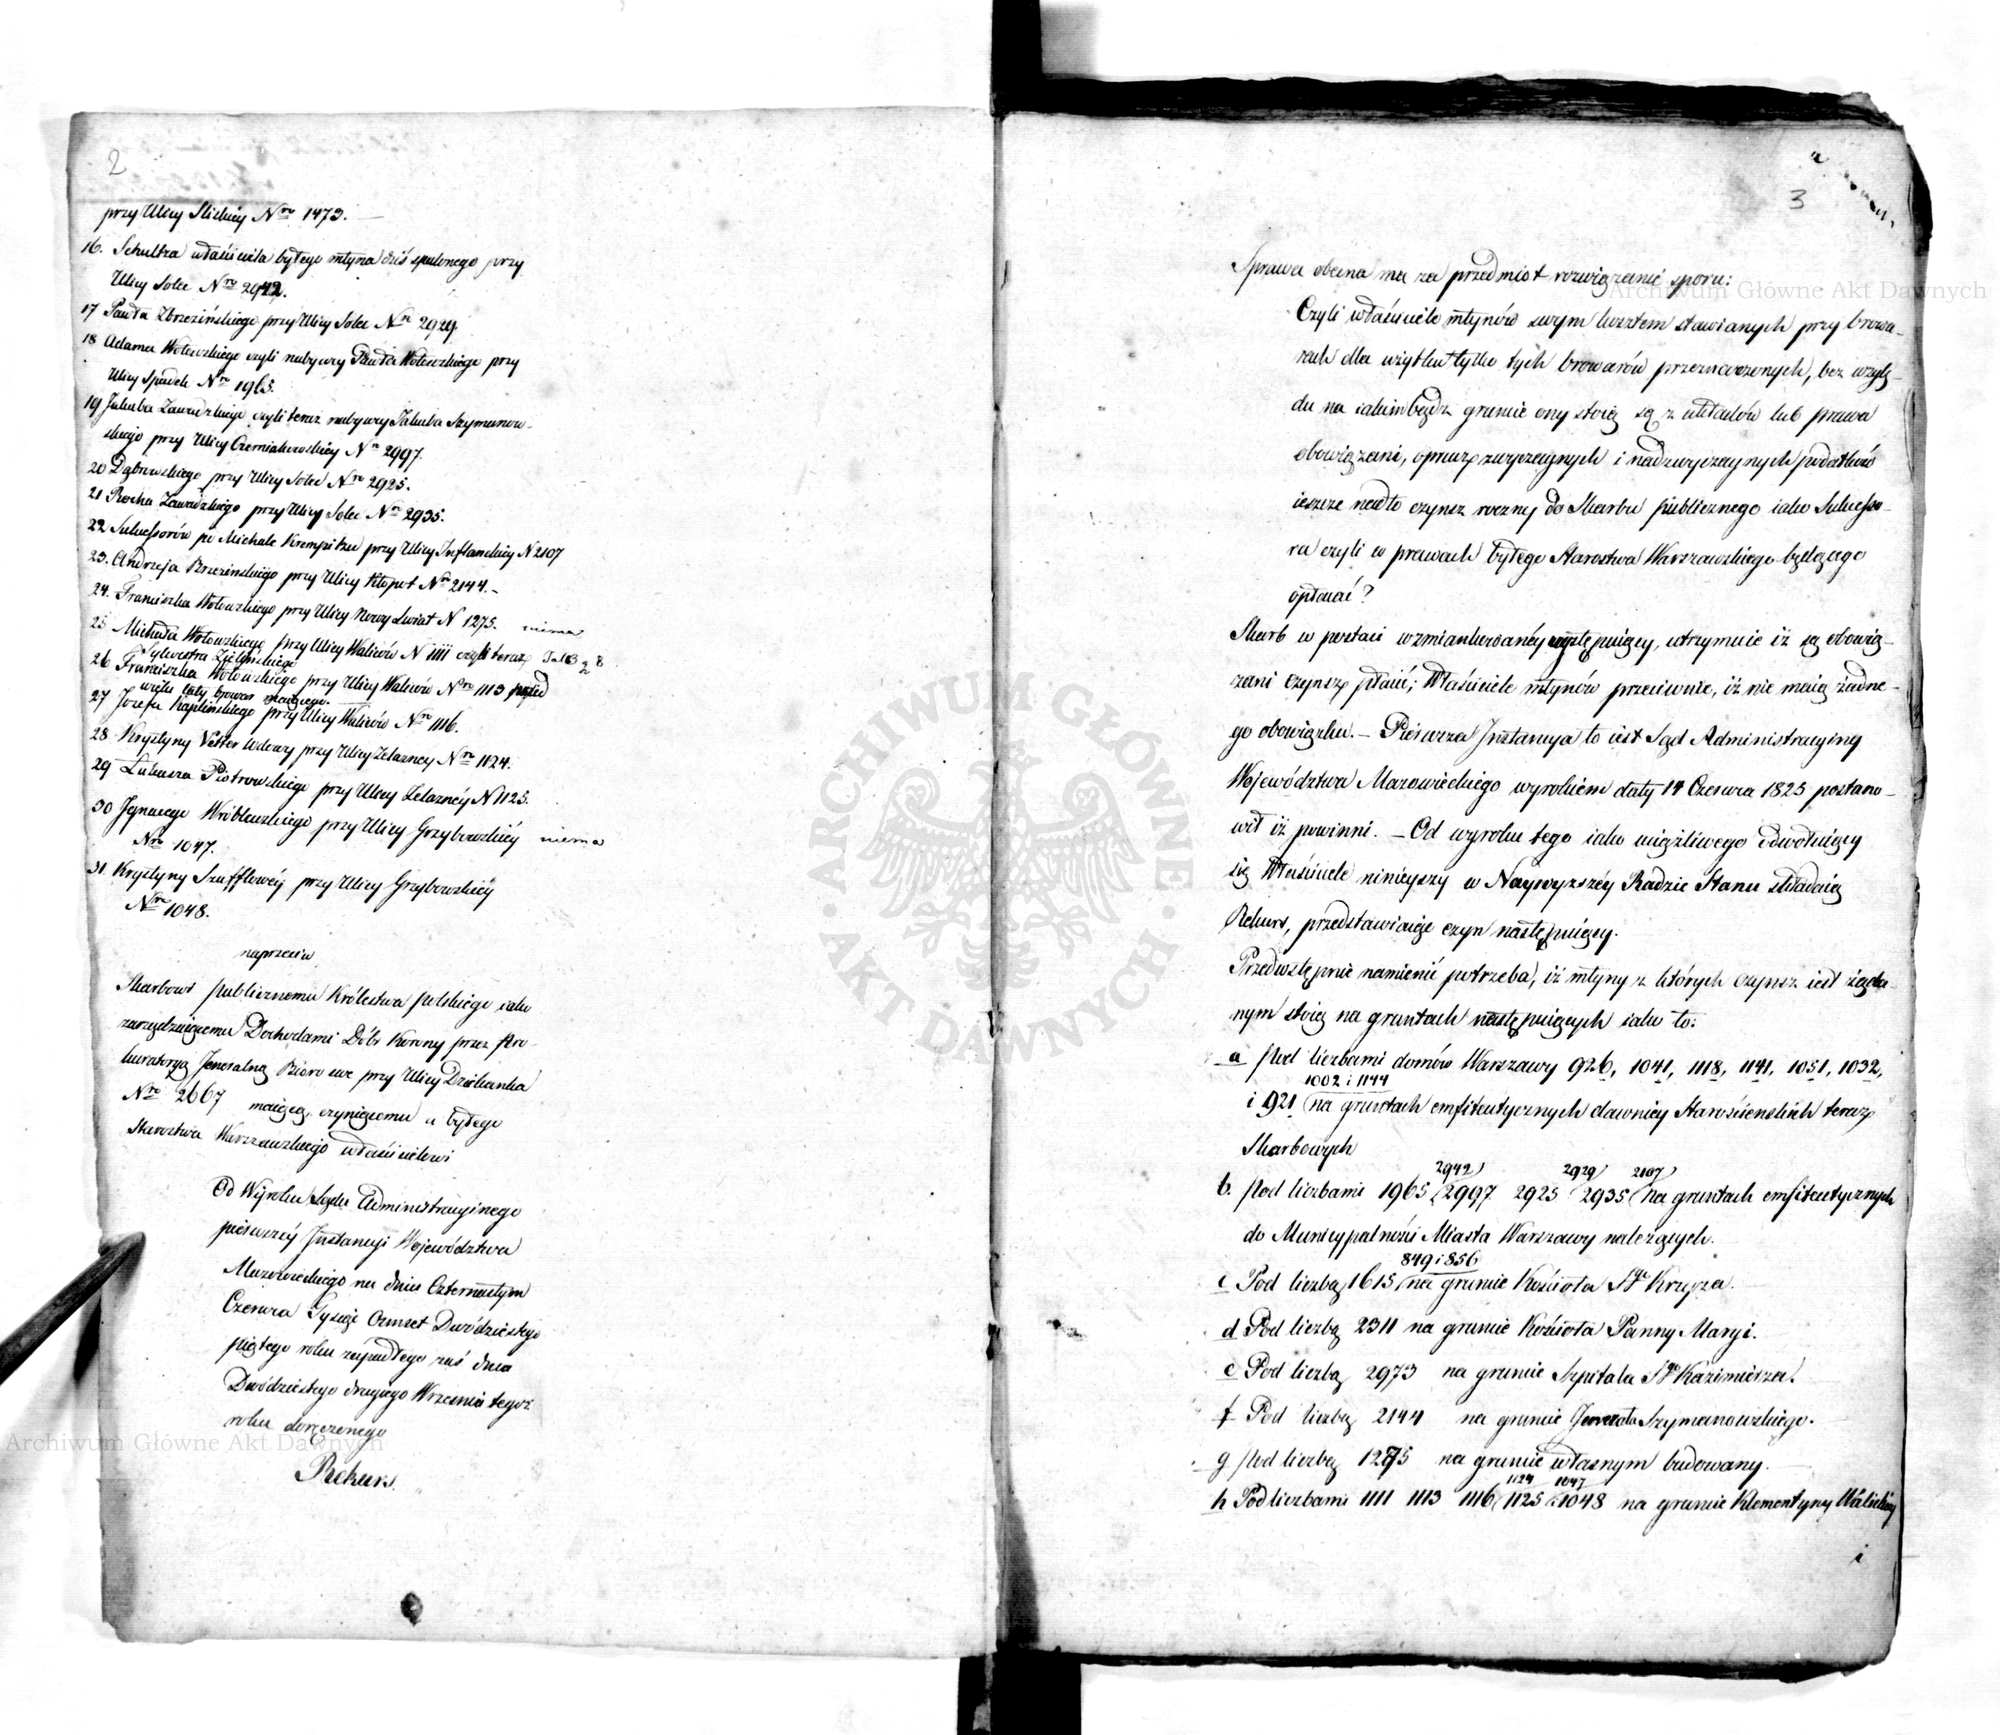 2
przy Ulicy Śliskiéy Nro 1473.
16. Schultza właściciela byłego młyna dziś spalonego przy
Ulicy Solec Nro 2942.
17 Pawła Brzezińskiego przy Ulicy Solec Nro 2929
18 Adama Wołowskiego czyli nabywcy Pawła Wołowskiego przy
Ulicy Spadek Nro 1965.
19 Jakuba Zawadzkiego czyli teraz nabywcy Jakuba Szymanow-
skiego przy Ulicy Czerniakowskiéy Nro 2997.
20 Dąbrowskiego przy Ulicy Solec Nro 2925.
21 Rocha Zawadzkiego przy Ulicy Solec Nro 2935.
22 Sukcessorów po Michale Krempitzu przy Ulicy Inflanckiéy N 2107
23. Andrzeja Brzezinskiego przy Ulicy Kłopot Nro 2144.-
24. Franciszka Wołowskiego przy Ulicy Nowy Swiat N 1275. niema
25 Michała Wołowskiego przy Ulicy Waliców N 1111 czyli teraz
Sylwestra Zielinskiego
26 Franciszka Wołowskiego przy Ulicy Waliców Nro 1113
cały browar maiącego.
27 Józefa Kaplińskiego przy Ulicy Waliców Nro 1116.
28 Krystyny Vetter Wdowy przy Ulicy Zelazney Nro 1124.
29 Łukasza Piotrowskiego przy Ulicy Zelaznéy N 1125.
30 Jgnacego Wróblewskiego przy Ulicy Grzybowskiéy niema
Nro 1047.
31 Krystyny Szufflowéy przy Ulicy Grzybowskiéy
Nro 1048.
naprzeciw
Skarbowi publicznemu Królestwa polskiego iako
zarządzaiącemu Dochodami Dóbr Korony przez Pro-
kuratoryą Jeneralną Bióro swe przy Ulicy Dziekanka
Nro 2667 maiącą, czyniącemu a byłego
Starostwa Warszawskiego właścicielowi
Od Wyroku Sądu Administracyinego
pierwszéy Jnstancyi Województwa
Mazowieckiego na dniu Czternastym
Czerwca Tysiąc Ośmset Dwódziestego
piątego roku zapadłego zaś dnia
Dwódziestego drugiego Września tegoż
roku doręczonego
Rekurs.
3
Sprawa obecna ma za przedmiot rozwiązanie sporu:
Czyli właściciele młynów swym kosztem stawianych przy browa-
rach dla użytku tylko tych browarów przeznaczonych, bez wzglę-
du na iakimbądź gruncie ony stoią są z układów lub prawa
obowiązani, oprucz zwyczaynych i nadzwyczaynych podatków
ieszcze nadto czynsz roczny do Skarbu publicznego iako Sukcesso-
ra czyli w prawach byłego Starostwa Warszawskiego będącego
opłacać?
Skarb w postaci wzmiankowanéy występuiący, utrzymuie iż są obowią-
zani czynsz płacić; Właściciele młynów przeciwnie, iż nie maią żadne-
go obowiązku.- Pierwsza Jnstancya to iest Sąd Administracyiny
Województwa Mazowieckiego wyrokiem daty 14 Czerwca 1825 postano-
wił iż powinni. - Od wyroku tego iako uciążliwego odwołuiący
się Właściciele ninieyszy w Naywyzszéy Radzie Stanu składaią
Rekurs, przedstawiaiąc czyn następuiący.
Przedwstępnie namienić potrzeba, iż młyny z których czynsz iest żąda-
nym stoią na gruntach następuiących iako to:
a Pod liczbami domów Warszawy 926, 1041, 1118, 1141, 1051, 1032,
1002 i 1144
i 921 na gruntach emfiteutycznych dawniey Starościenskich teraz
Skarbowych
2942 2929 2107
b. Pod liczbami 1965 2997 2925 2935 na gruntach emfiteutycznych
do Municypalności Miasta Warszawy należących.
849 i 856
c Pod liczbą 1615 na gruncie Kościoła Sgo Krzyza.
d Pod liczbą 2311 na gruncie Kościoła Panny Maryi.
e Pod liczbą 2973 na gruncie Szpitala Sgo Kazimierza.
f Pod liczbą 2144 na gruncie Jenerała Szymanowskiego.
g Pod liczbą 1275 na gruncie własnym budowany.
1124 1047
h Pod liczbami 1111 1113 1116 1125 1048 na gruncie Klementyny Walickiey
i
Archiwum Główne Akt Dawnych
Archiwum Główne Akt Dawnych
ARCHIWUM GŁÓWNE AKT DAWNYCH